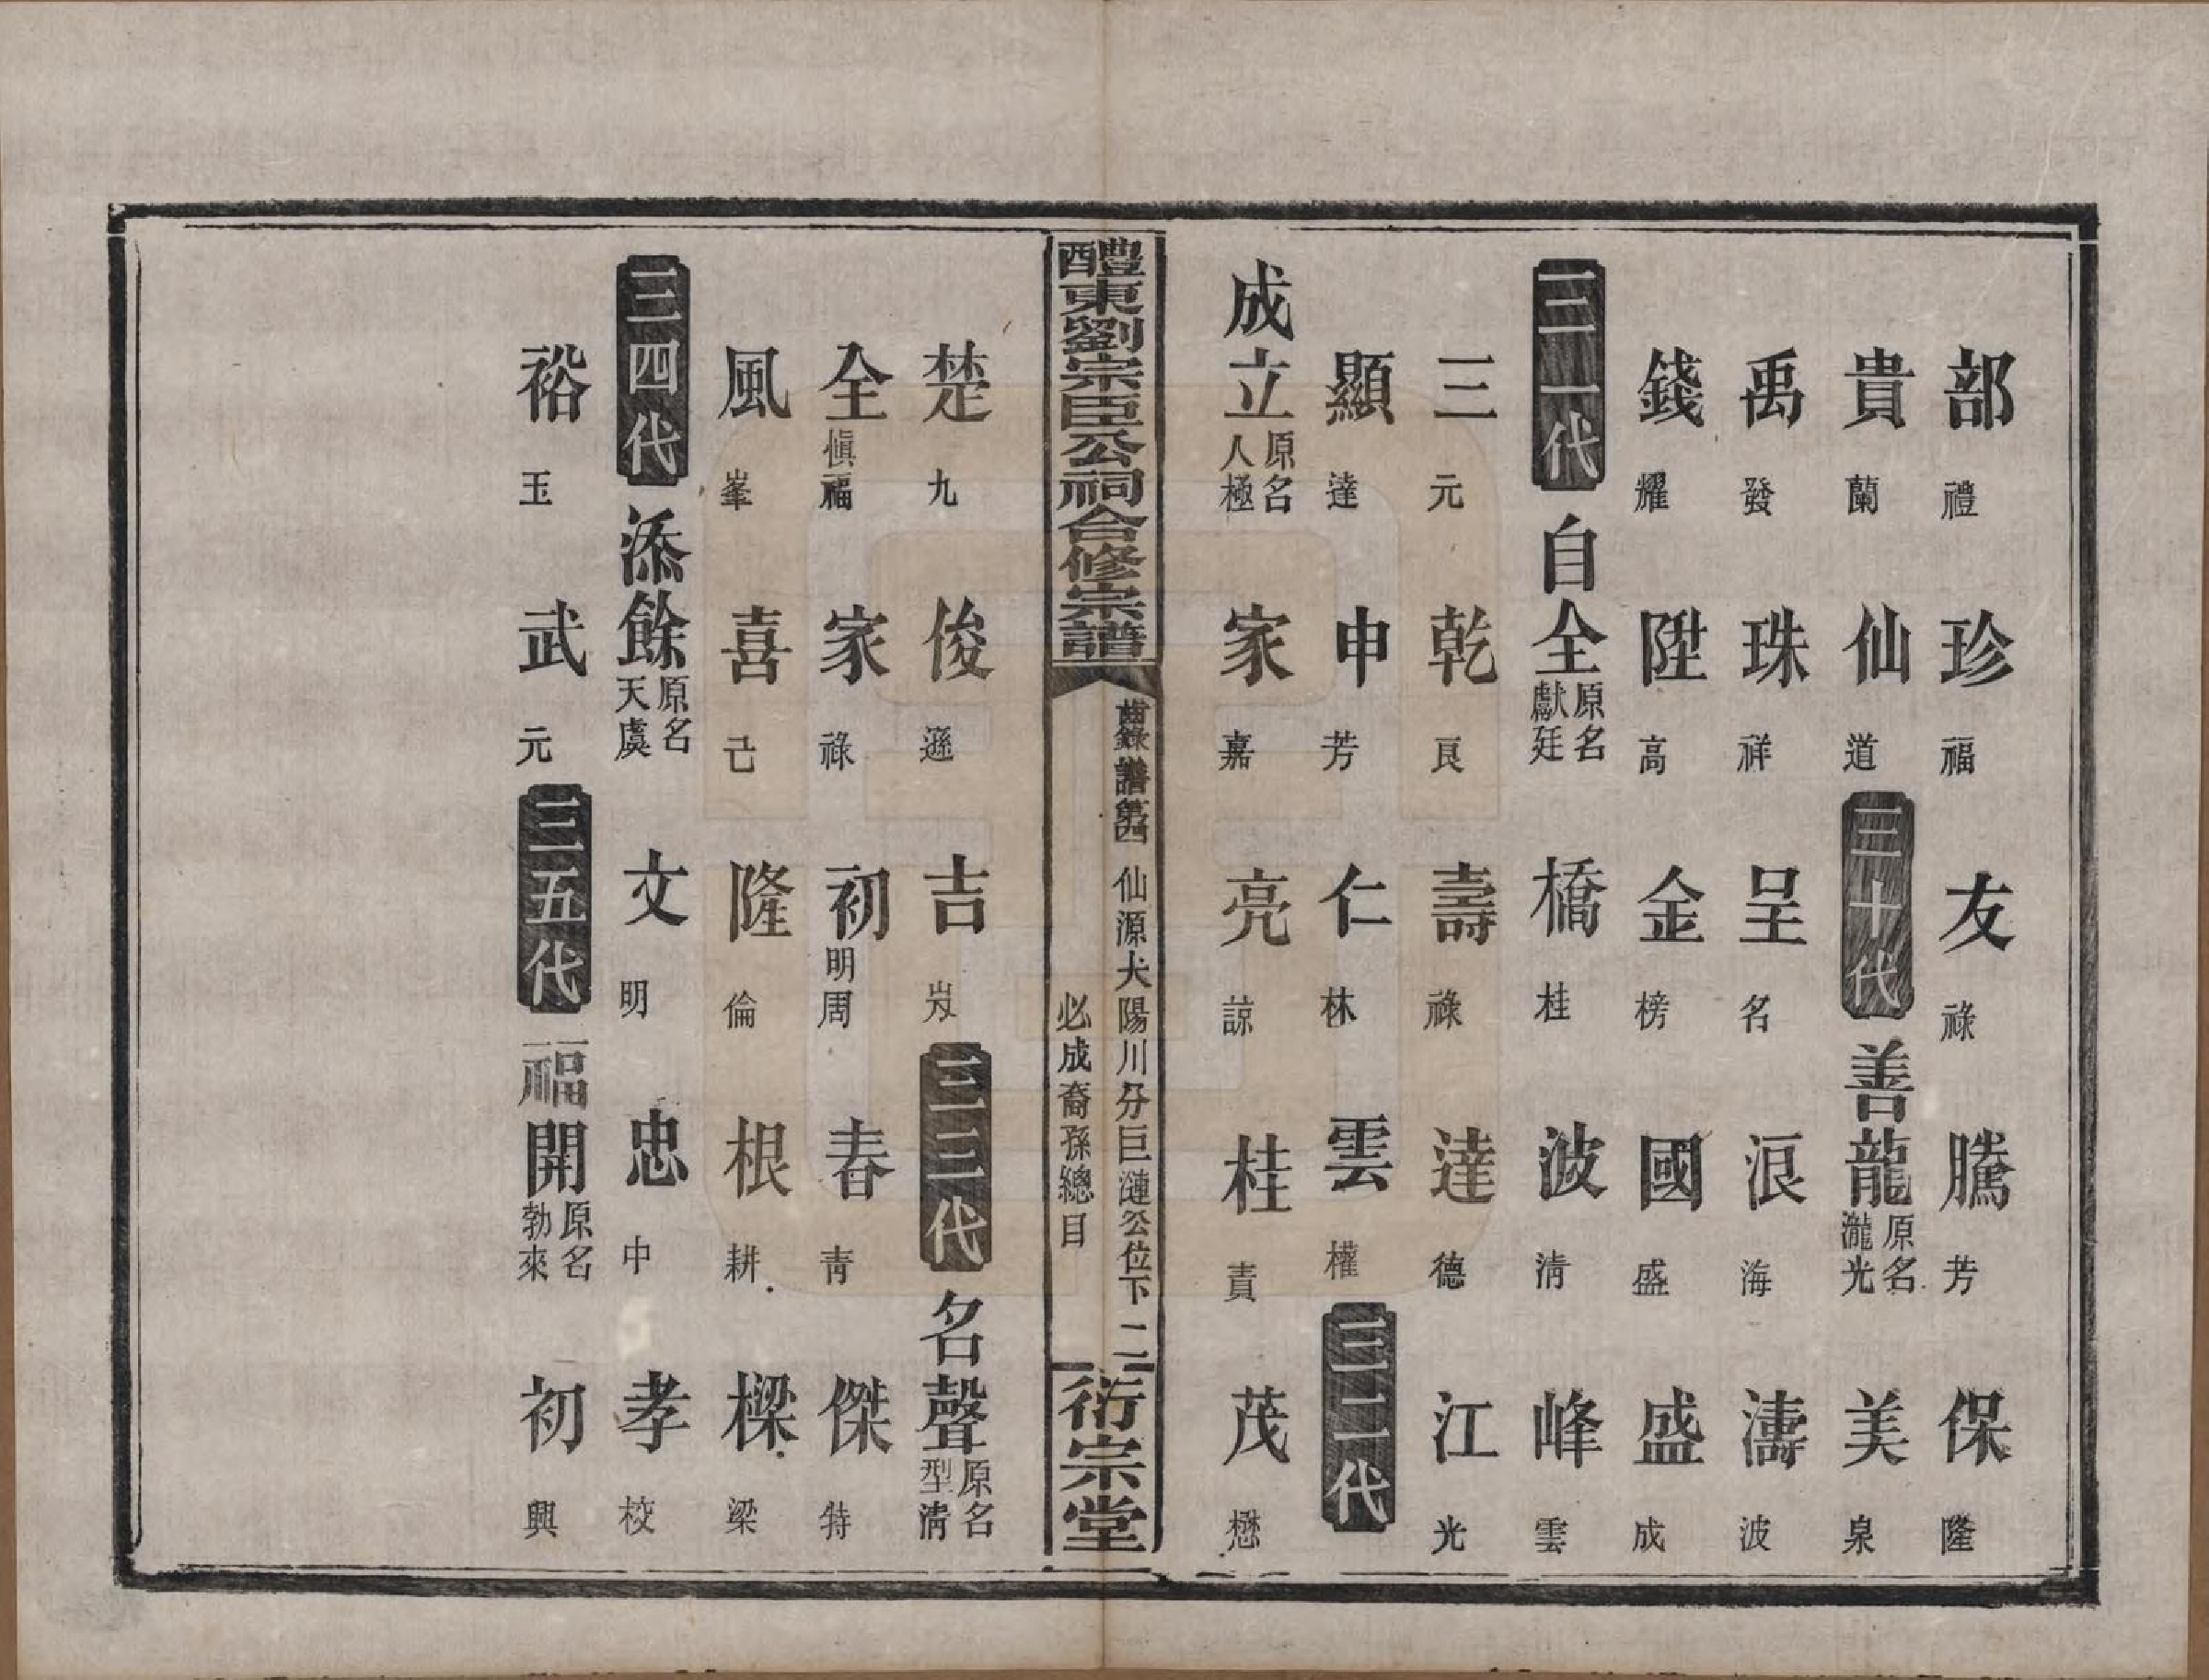 部禮 珍福 友祿 騰芳 保隆
貴蘭 仙道 三十代 善龍原名瀧光 美泉
禹發 珠祥 呈名 浪海 濤波
錢耀 陞高 金榜 國盛 盛成
三一代 自全原名獻廷 橋桂 波清 峰雲
三元 乾良 壽祿 達德 江光
顯達 申芳 仁林 雲權 三二代
成立原名人極 家嘉 亮諒 桂責 茂懋
醴東劉宗臣公祠合修宗譜
齒錄 譜第四 仙源大陽川分巨漣公位下 二
必成裔孫總目
衍宗堂
楚九 俊遜 吉 三三代 名聲原名型清
全慎福 家祿 初明周 春青 傑特
風峯 喜己 隆倫 根耕 樑梁
三四代 添餘原名天虞 文明 忠中 孝校
裕玉 武元 三五代 福開原名勃來 初興